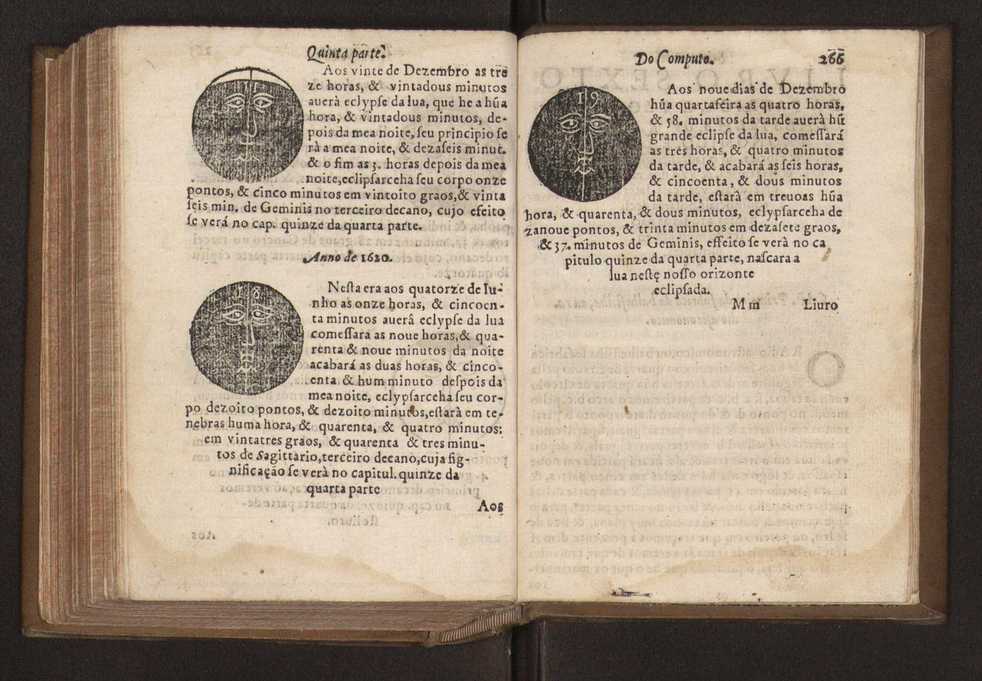 Quinta parte.
Aos vinte de Dezembro as tre
ze horas, & vintadous minutos
auerà eclypſe da lua, que he a hũa
hora, & vintadous minutos, de-
pois da mea noite, ſeu principio ſe
rà a mea noite, & dezaſeis minut.
& o fim as 3. horas depois da mea
noite,eclipſarceha ſeu corpo onze
pontos, & cinco minutos em vintoito graos,& vinta
ſeis min. de Geminis no terceiro decano, cujo efeito
ſe verá no cap. quinze da quarta parte.
Anno de 1620.
18
Neſta era aos quatorze de Iu-
nho as onze horas, & cincoen-
ta minutos auerâ eclypſe da lua
comeſſara as noue horas,& qua-
renta & noue minutos da noite
acabará as duas horas, & cinco-
enta & hum minuto deſpois da
mea noite, eclypſarceha ſeu cor-
po dezoito pontos, & dezoito minutos,eſtarà em te-
nebras huma hora, & quarenta, & quatro minutos:
em vintatres graos, & quarenta & tres minu-
tos de Sagittario,terceiro decano,cuja ſig-
nificação ſe verà no capitul. quinze da
quarta parte
Aos
Do Computo. 266
19
Aos noue dias de Dezembro
hũa quartafeira as quatro horas,
& 58. minutos da tarde auerà hũ
grande eclipſe da lua, comeſſará
as tres horas, & quatro minutos
da tarde, & acabará as ſeis horas,
& cincoenta, & dous minutos
da tarde, eſtarà em treuoas hũa
hora, & quarenta, & dous minutos, eclypſarceha de
zanoue pontos, & trinta minutos em dezaſete graos,
& 37. minutos de Geminis, effeito ſe verà no ca
pitulo quinze da quarta parte, naſcara a
lua neſte noſſo orizonte
eclipſada.
M m Liuro